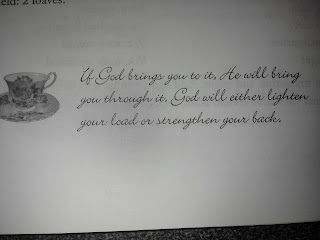 eld: 2 loaves.
If God brings you to it, He will bring
you through it. God will either lighten
your load or strengthen your back.